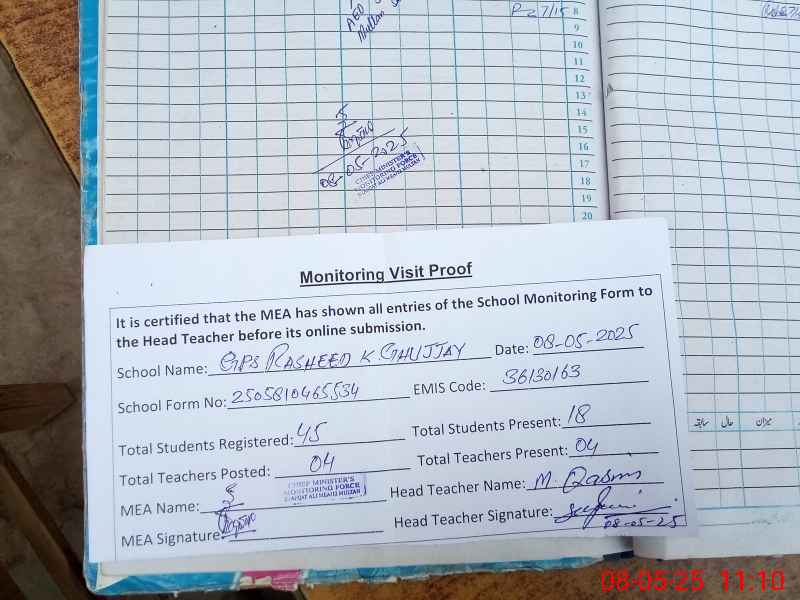 AEO
Multan
P-27/15 8
9
10
11
12
13
14
15
16
17
18
19
20
08-05-2025
CHIEF MINISTER'S
MONITORING FORCE
LIAQAT ALI MEAI(I) MULTAN
Monitoring Visit Proof
It is certified that the MEA has shown all entries of the School Monitoring Form to
the Head Teacher before its online submission.
School Name: GPS RASHEED K GHUJJAY Date: 08-05-2025
School Form No: 2505810465534 EMIS Code: 36130163
Total Students Registered: 45 Total Students Present: 18
Total Teachers Posted: 04 Total Teachers Present: 04
MEA Name: CHIEF MINISTER'S
MONITORING FORCE
LIAQAT ALI MEAI(I) MULTAN
Head Teacher Name: M. Qasim
MEA Signature: Head Teacher Signature:
08-05-25
میزان حال سابقہ
08-05-25 11:10